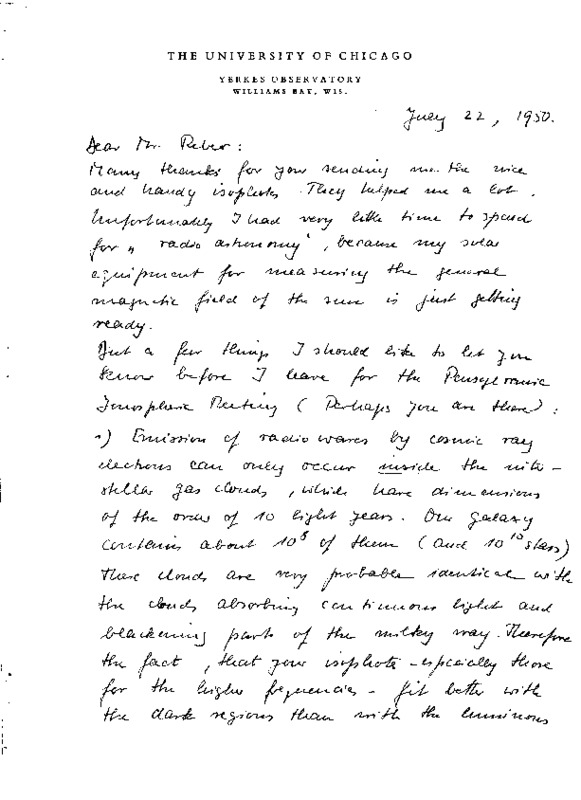 THE UNIVERSITY OF CHICAGO
YERKES OBSERVATORY
WILLIAMS BAY, WIS.
July 22, 1950.
Dear Mr. Reber:
Many thanks for your sending me the nice
and handy isophotes. They helped me a lot.
Unfortunately I had very little time to spend
for „radio astronomy", because my solar
equipment for measuring the general
magnetic field of the sun is just getting
ready.
Just a few things I should like to let you
know before I leave for the Pennsylvania
Ionospheric Meeting (Perhaps you are there):
1) Emission of radio waves by cosmic ray
electrons can only occur inside the inter-
stellar gas clouds, which have dimensions
of the order of 10 light years. Our galaxy
contains about 10⁸ of them (and 10¹⁰ stars)
These clouds are very probable identical with
the clouds absorbing continuous light and
blackening parts of the milky way. Therefore
the fact, that your isophote - especially those
for the higher frequencies - fit better with
the dark regions than with the luminous